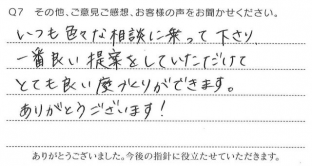 Q7 その他、ご意見ご感想、お客様の声をお聞かせください。
いつも色々な相談に乗って下さり、
一番良い提案をしていただけて
とても良い庭づくりができます。
ありがとうございます!
ありがとうございました。今後の指針に役立たせていただきます。